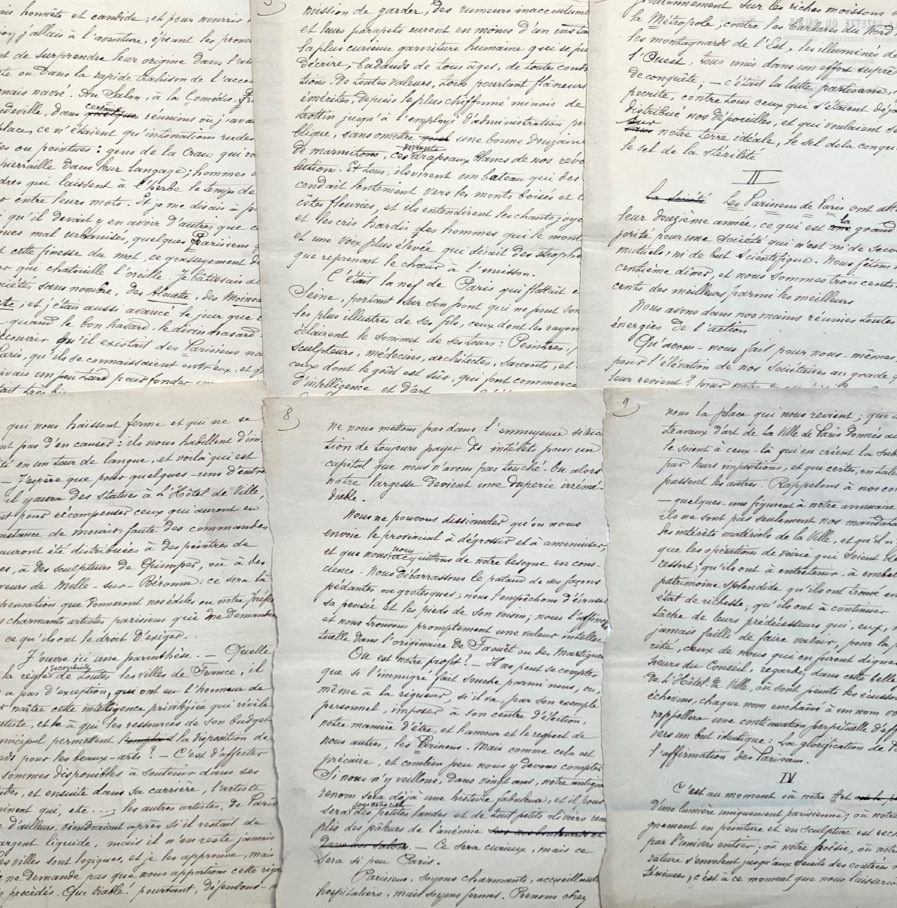 ais honnête et candide; et pour nourrir
j'allais à l'aventure, épiant les
de surprendre leur origine dans l'
ou dans la rapide trahison de l'accen
mais navré. Au Salon, à la Comédie-
udeville, dans certaines réunions où j'av
place, ce n'étaient qu'intonations rudes
ou pointues: gens de la Crau qui
pierraille dans leur langage; hommes
qui laissent à l'herbe le temps de
entre leurs mots. Et je me disais à
qu'il devait y en avoir d'autres que
ques mal urbanisés, quelques Parisiens
cette finesse du mot, ce grasseyement
qui chatouille l'oreille. Je bâtissais
ciétés sans nombre, des Alouette, des Moineau
et j'étais aussi avancé le jour que
quand le bon hasard, le divin hasard
découvrir qu'il existait des Parisiens
Paris, qu'ils se connaissaient entre eux, et
5
mission de garder, des rumeurs inaccoutumé
et leurs parapets eurent en moins d'un instan
la plus curieuse garniture humaine qui se pu
décrire; badauds de tous âges, de toutes cond
sions, de toutes valeurs, tous pourtant flâneurs
émérites, depuis le plus chiffonné minois de
trottin jusqu'à l'employé d'administration pu
blique, sans omettre une bonne douzaine
de marmitons, ces vivants drapeaux blancs de nos révo
lutions. Et tous, ils virent un bateau qui des
cendait lentement vers les monts boisés et l
côtes fleuries, et ils entendirent les chants joye
et les cris hardis des hommes qui le mont
et une voix plus élevée qui disait des strophe
que reprenait le chœur à l'unisson.
C'était la nef de Paris qui flottait
Seine, portant sur son pont qui ne peut so
les plus illustres de ses fils, ceux dont les rayon
éclairent le sommet de ses tours: Peintres,
sculpteurs, médecins, architectes, savants, et
ceux dont le goût est sûr, qui font commerce
d'intelligence et d'art
sur les riches moissons
la Métropole; contre les barbares du Nord
les montagnards de l'Est, les illuminés de
l'Ouest, tous unis dans un effort suprê
de conquête; — c'était la lutte partisane,
contre tous ceux qui s'étaient déjà
distribué nos dépouilles, et qui voulaient se
sur notre terre idéale, le sel de la conqu
le sel de la stérilité
II
La société Les Parisiens de Paris ont att
leur douzième année, ce qui est la grand
jorité pour une Société qui n'est ni de Secou
mutuels, ni de but Scientifique. Nous fêtons
centième dîner, et nous sommes trois cents
cents des meilleurs parmi les meilleurs
Nous avons dans nos mains réunies toutes
énergies de l'action
Qu'avons-nous fait pour nous-mêmes,
pour l'élévation de nos Sociétaires au grade q
leur revient? pour notre
qui nous haïssent ferme et qui ne se
nt pas d'en causer: ils nous habillent d'im
en un tour de langue, et voilà qui est
— J'espère que pour quelques-uns d'entre
il y aura des statues à l'Hôtel de Ville,
pour récompenser ceux qui auront eu
nstance de mourir, faute des commandes
auront été distribuées à des peintres de
à des sculpteurs de Quimper, ou à des
veurs de Melle-sur-Béronne: ce sera la
pensation que donneront nos édiles ou notre préfet
charmants artistes parisiens qui ne demande
ce qu'ils ont le droit d'exiger.
J'ouvre ici une parenthèse. — Quelle
la règle de toutes les villes de France, il
a pas d'exception, qui ont eu l'honneur de
naître cette intelligence privilégiée qui révèle
artiste, et à qui les ressources de son budget
nicipal permettent la disposition de
pour les beaux-arts? — C'est d'affecter
sommes disponibles à soutenir dans ses
et ensuite dans sa carrière, l'artiste
qui, etc... les autres artistes, de Paris
d'ailleurs, viendraient après s'il restait de
argent liquide, mais il n'en reste jamais
villes sont logiques, et je les approuve, mais
ne demande pas que nous apportions cette rigu
procédés. Que diable! pourtant, défendons-n
8
ne nous mettons pas dans l'ennuyeuse situa
tion de toujours payer des intérêts pour un
capital que nous n'avons pas touché. Ou alors
notre largesse devient une duperie irrémé
diable.
Nous ne pouvons dissimuler qu'on nous
envoie le provincial à dégrossir et à amenuiser,
et que nous nous acquittons de notre besogne en cons
cience. Nous débarrassons le pataud de ses façons
pédantes ou grotesques; nous l'empêchons d'écraser
sa pensée et les pieds de son voisin; nous l'affinons
et nous trouvons promptement une valeur intellec
tuelle dans l'originaire de Faouët ou des Martigues.
Où est notre profit? — Il ne peut se compter
que si l'immigré fait souche parmi nous, ou
même à la rigueur s'il va, par son exemple
personnel, imposer à son centre d'élection,
notre manière d'être, et l'amour et le respect de
nous autres, les Parisiens. Mais comme cela est
précaire, et combien peu nous y devons compter
Si nous n'y veillons, dans vingt ans, notre antique
renom sera déjà une histoire fabuleuse, et il pous
sera des petites landes et de tout petits oliviers
plis des pâleurs de l'anémie
— Ce sera curieux, mais ce
sera si peu Paris.
Parisiens, soyons charmants, accueillants
hospitaliers, mais soyons fermes. Prenons chez
9
nous la place qui nous revient; que
travaux d'art de la Ville de Paris donnés au
le soient à ceux-là qui en créent la sub
par leurs impositions, et que cela
passent les autres. Rappelons à nos con
— quelques-uns figurent à notre annuaire
ils ne sont pas seulement nos mandata
des intérêts matériels de la Ville, et qu'il n'
que les opérations de voirie qui soient de
ressort; qu'ils ont à entretenir, à embel
patrimoine splendide qu'ils ont trouvé en
état de richesse; qu'ils ont à continuer
tâche de leurs prédécesseurs qui, eux, n
jamais failli de faire valoir, pour la
cité, ceux de nous qui en furent dignes
seurs du Conseil, regardez, dans cette belle
de l'Hôtel de Ville, où sont peints les écusson
échevins, chaque nom enchaîné à un nom vo
rappellera une continuation perpétuelle d'ef
vers un but identique: La glorification de P
l'affirmation des Parisiens.
IV
C'est au moment où notre Art
d'une lumière uniquement parisienne; où notre
gnement en peinture et en sculpture est rech
par l'univers entier, où notre poésie, où notr
rature s'envolent jusqu'aux seuils des contrées
; c'est à ce moment que nous laisserio